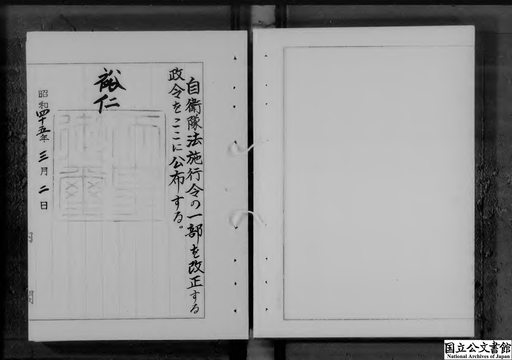 自衛隊法施行令の一部を改正する
政令をここに公布する。
裕仁
昭和四十五年三月二日
国立公文書館
National Archives of Japan